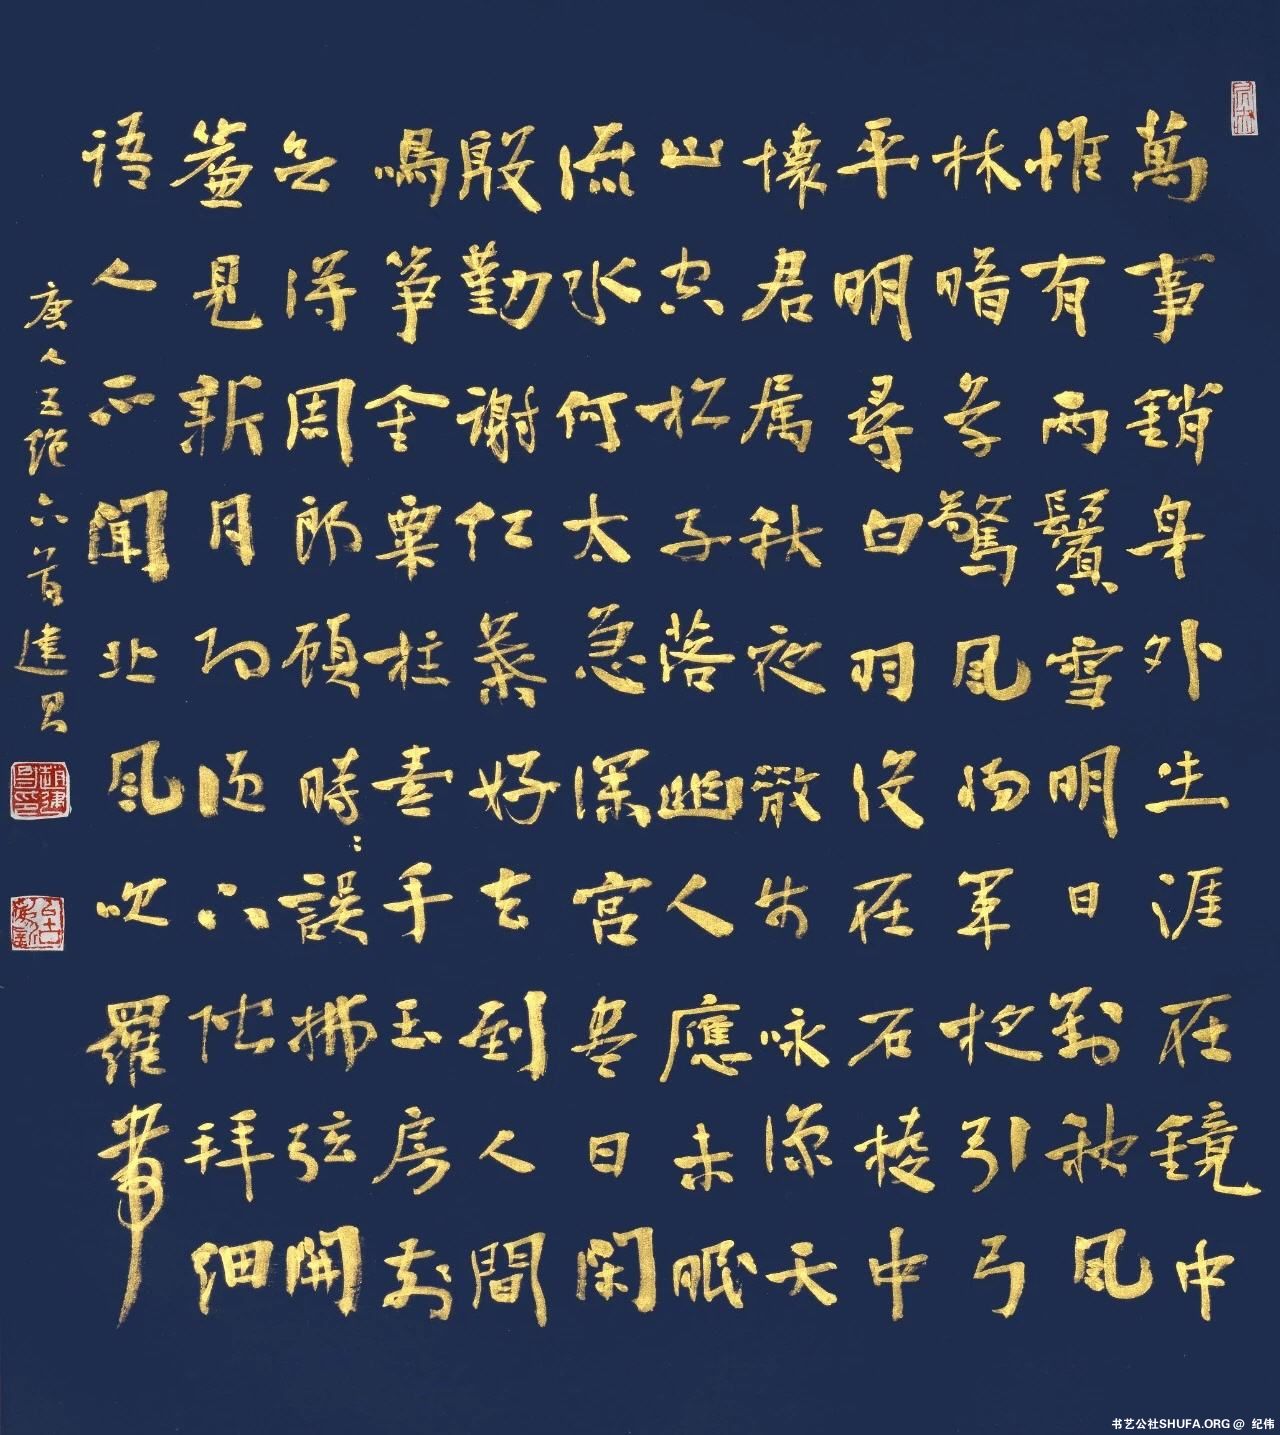 萬事銷身外生涯在鏡中
惟有兩鬢雪明日對秋風
林暗草驚風將軍夜引弓
平明尋白羽沒在石棱中
懷君属秋夜散步咏涼天
山空松子落幽人應未眠
流水何太急深宮盡日閑
殷勤謝紅葉好去到人間
鳴箏金粟柱素手玉房前
欲得周郎顧時時誤拂弦開
簾見新月即便下階拜細
語人不聞北風吹羅帶
唐人五絕六首
书艺公社SHUFA.ORG @ 纪伟